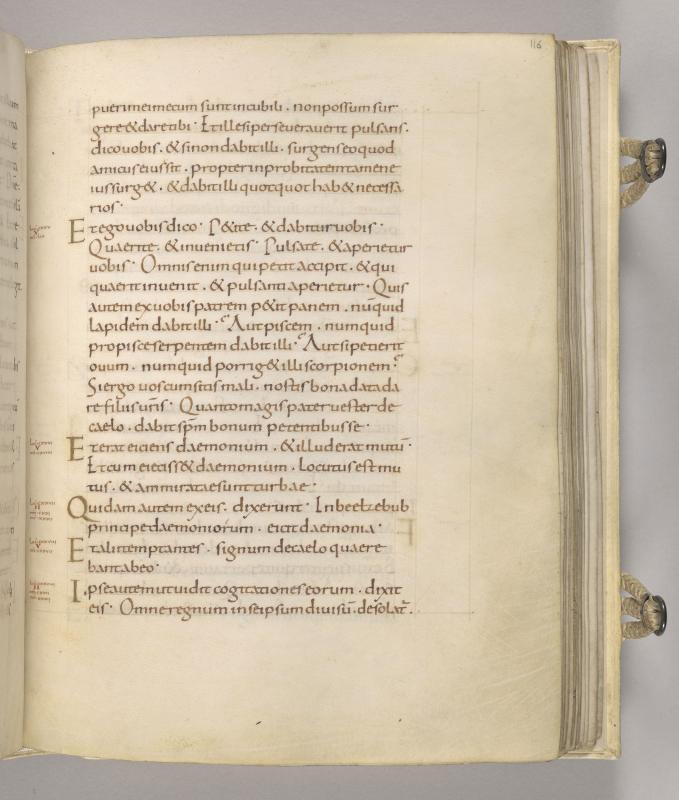 116
puerimeimecum suntincubili. nonpossum sur
gere&daretibi. Etillesiperseverauerit pulsans.
dicouobis. &sinondabitilli. surgenseoquod
amicuseiussit. propterinprobitatemtamene
iussurg&. &dabitilli quotquot hab& necessa
rios.
Etegouobisdico. P&ite. &dabituruobis.
Quaerite. &inuenietis. Pulsate. &aperietur
uobis. Omnisenim quipetit accipit. &qui
quaeritinuenit. & pulsanti aperietur. Quis
autemexuobispatrem p&itpanem. nūquid
lapidem dabitilli. Autpiscem. numquid
propisceserpentem dabitilli. Autsipetierit
ouum. numquid porrig&illiscorpionem.
Siergo uoscumsitismali. nostisbonadatada
re filiisuris. Quantomagispateruesterde
caelo. dabitspm bonum petentibusse.
Eterateiciens daemonium. &illuderat mutū.
Etcumeiecissetdaemonium. locutusestmu
tus. &ammirataesuntturbae.
Quidamautem exeis. dixerunt. Inbeelzebub
principedaemoniorum. eicitdaemonia.
Etaliitemptantes. signum decaelo quaere
bantabeo.
Ipseautemutuidit cogitationeseorum. dixit
eis. Omneregnum inseipsumdiuisū. desolat.